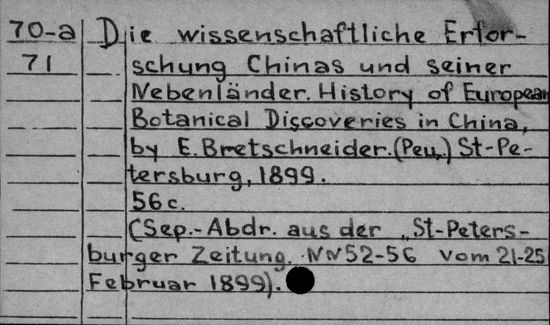 70-a Die wissenschaftliche Erfor-
71 schung Chinas und seiner
Nebenländer. History of European
Botanical Discoveries in China,
by E. Bretschneider. (Рец.) St-Pe-
tersburg, 1899.
56 c.
(Sep.-Abdr. aus der „St-Peters-
burger Zeitung. NN 52-56 vom 21-25
Februar 1899).